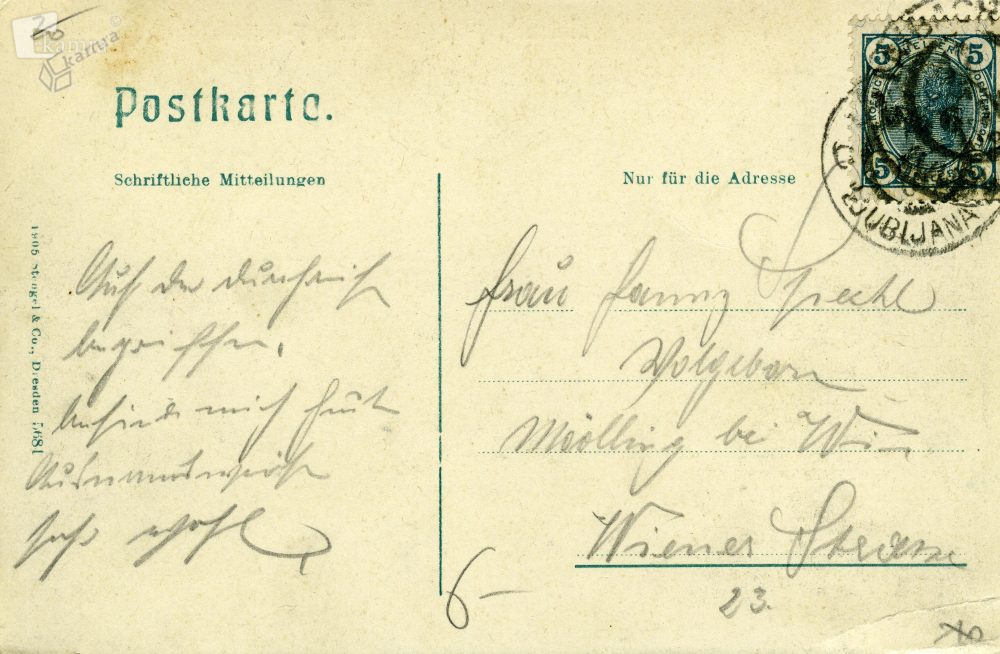 20
kamra
kamra
Postkarte.
5 5
5 5
LAIBACH
LJUBLJANA
Schriftliche Mitteilungen
Nur für die Adresse
1905 Stengel & Co., Dresden 5681
Auf der Durchreise
begriffen,
befinde mich heute
Ausnamsweise
sehr wohl
Frau Fanny
Wolgeborn
Mödling bei Wien
Wiener Strasse
23.
6-